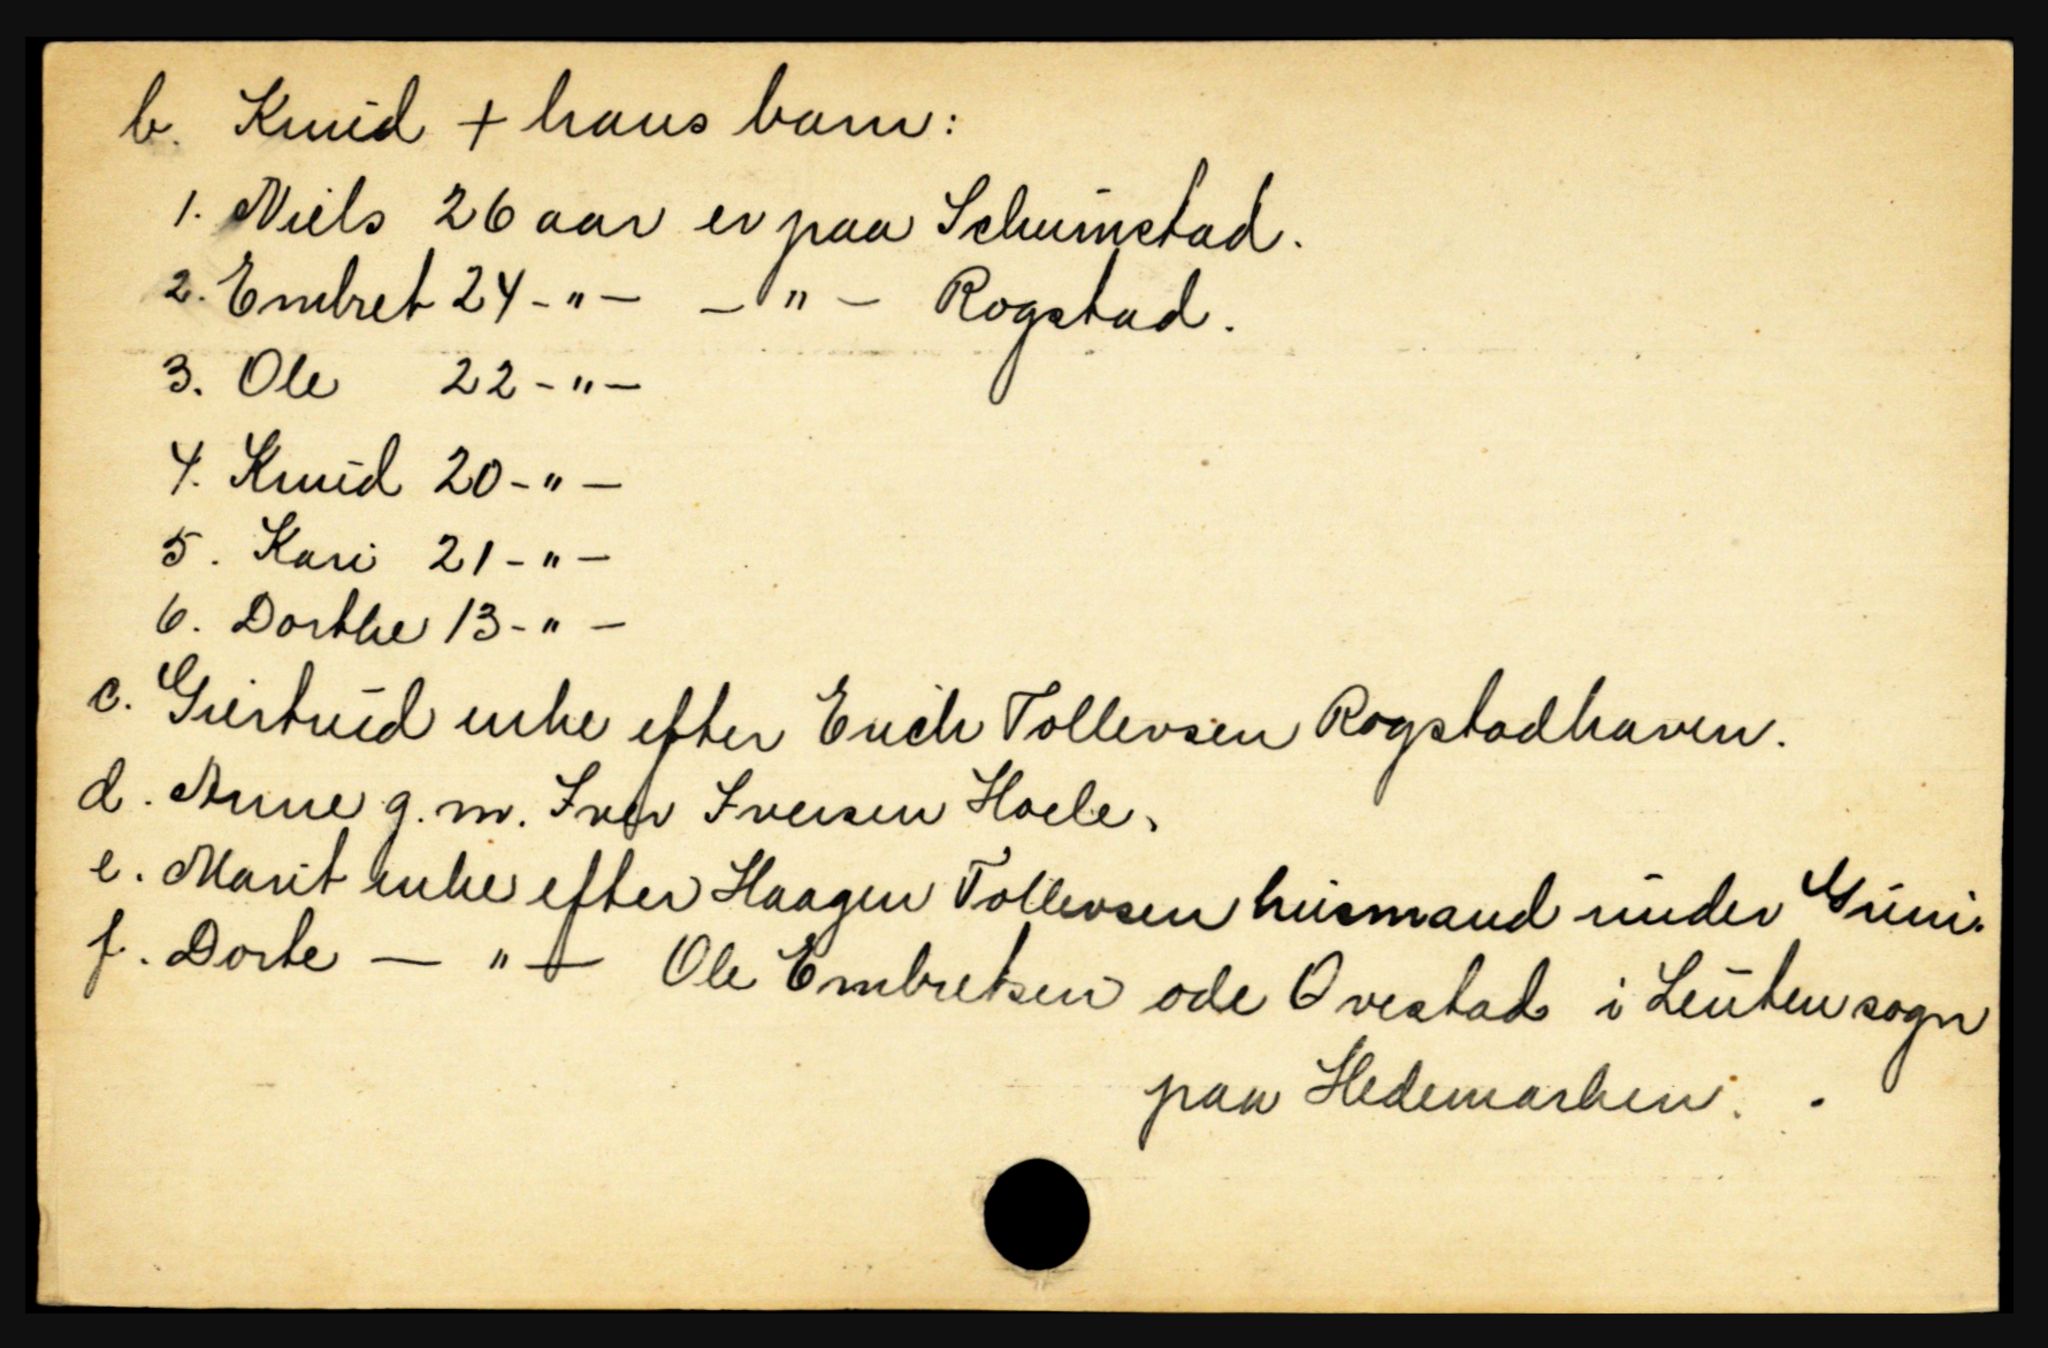 b. Knud + hans barn:
1. Niels 26 aar er paa Schumstad.
2. Embret 24 - " - - " - Rogstad.
3. Ole 22 - " -
4. Knud 20 - " -
5. Kari 21 - " -
6. Dorthe 13 - " -
c. Giertrud enke efter Erich Tollevsen Rogstadhaven.
d. Anne g. m. Iver Iversen Hoele.
e. Marit enke efter Haagen Tollevsen husmand under Huni.
f. Dorte - " - Ole Embretsen ode Ovestad i Leuten sogn
paa Hedemarken.